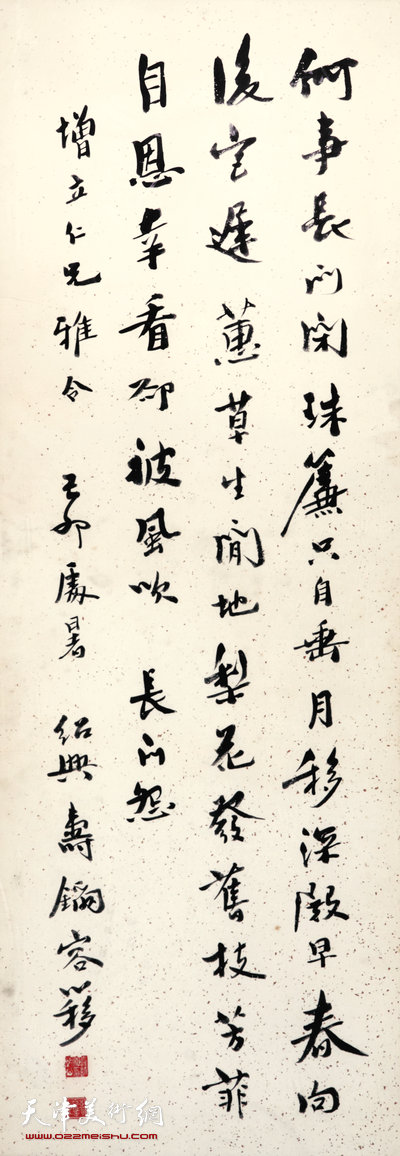 何事長門閉珠簾只自垂月移深殿早春向
後宮遲蕙草生閒地梨花發舊枝芳菲
自恩幸看卻被風吹 長門怨
增立仁兄雅令 己卯處暑 紹興壽鑈容簃
天津美術網
www.022meishu.com